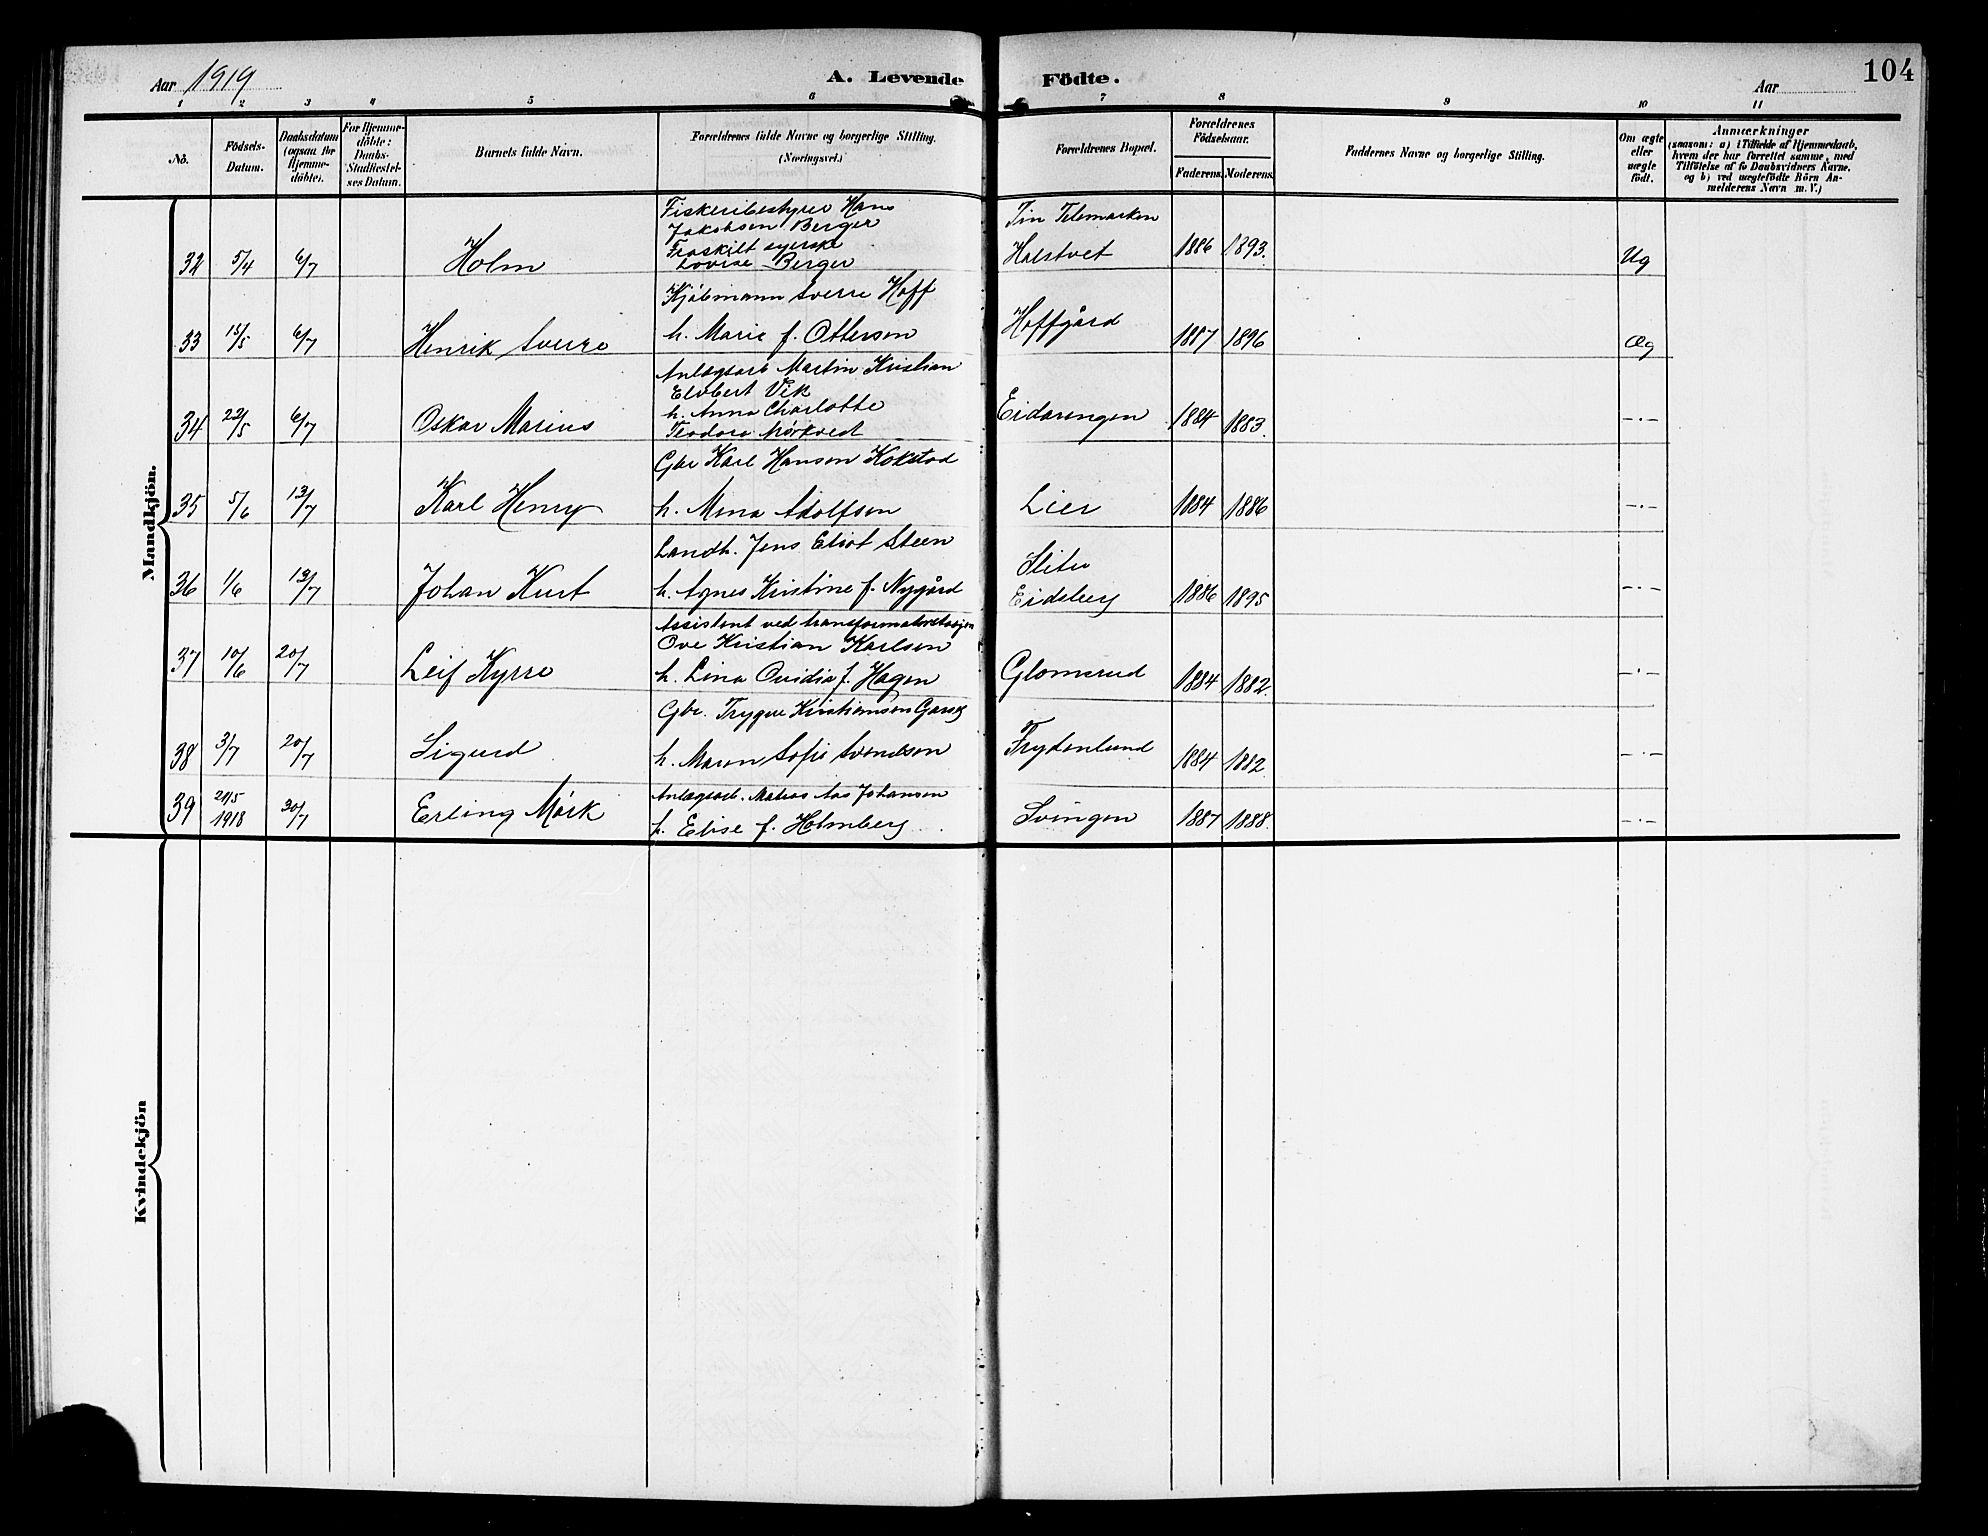 Aar 1919
A. Levende Födte.
Aar
104
1 2 3 4 5 6 7 8 9 10 11
No.
Födsels-
Datum.
Daabsdatum
(ogsaa for
Hjemme-
döbte).
For Hjemme-
döbte:
Daabs-
Stadfæstel-
ses Datum.
Barnets fulde Navn.
Forældrenes fulde Navne og borgerlige Stilling.
(Næringsvei.)
Forældrenes Bopæl.
Forældrenes
Födselsaar.
Faderens. Moderens.
Faddernes Navne og borgerlige Stilling.
Om ægte
eller
uægte
født.
Anmærkninger
(saasom: a) i Tilfælde af Hjemmedaab,
hvem der har forrettet samme, med
Tilföielse af to Daabsvidners Navne,
og b) ved uægtefödte Börn An-
melderens Navn m. V.)
Mandkjön.
32 5/4 6/7 Holm
Fiskeribestyrer Hans
Jakobsen Berger
Fraskilt syerske
Lovise Berger
Tin Telemarken
Halstvet
1886 1893. Ug
33 15/5 6/7 Henrik Sverre
Kjøbmann Sverre Hoff
h. Marie f. Ottersen
Hoffgård 1887 1896 Æg
34 22/5 6/7 Oskar Marius
Anlægsarb Martin Kristian
Elvbert Vik
h. Anna Charlotte
Teodora Mörkved
Eidarengen 1884 1883. -.-
35 5/6 13/7 Karl Henry
Gbr Karl Hansen Kokstad
h. Mina Adolfsen
Lier 1884 1886 -.-
36 1/6 13/7 Johan Kurt
Landh. Jens Eliot Steen
h. Agnes Kristine f. Nygård
Slitu
Eidsberg 1886 1895 -.-
37 10/6 20/7 Leif Kyrre
Assistent ved transformatorstasjon
Ove Kristian Karlsen
h. Lina Ovidia f. Hagen
Glomsrud 1884 1882. -.-
38 3/7 20/7 Sigurd
Gbr. Trygve Kristiansen
h. Maren Sofie Svendsen
Frydenlund 1884 1882. -.-
39 1918 30/7 Erling Mörk
Anlægsarb. Johansen
h. Elise f. Holmberg
Svingen 1887 1888. -.-
Kvindekjön